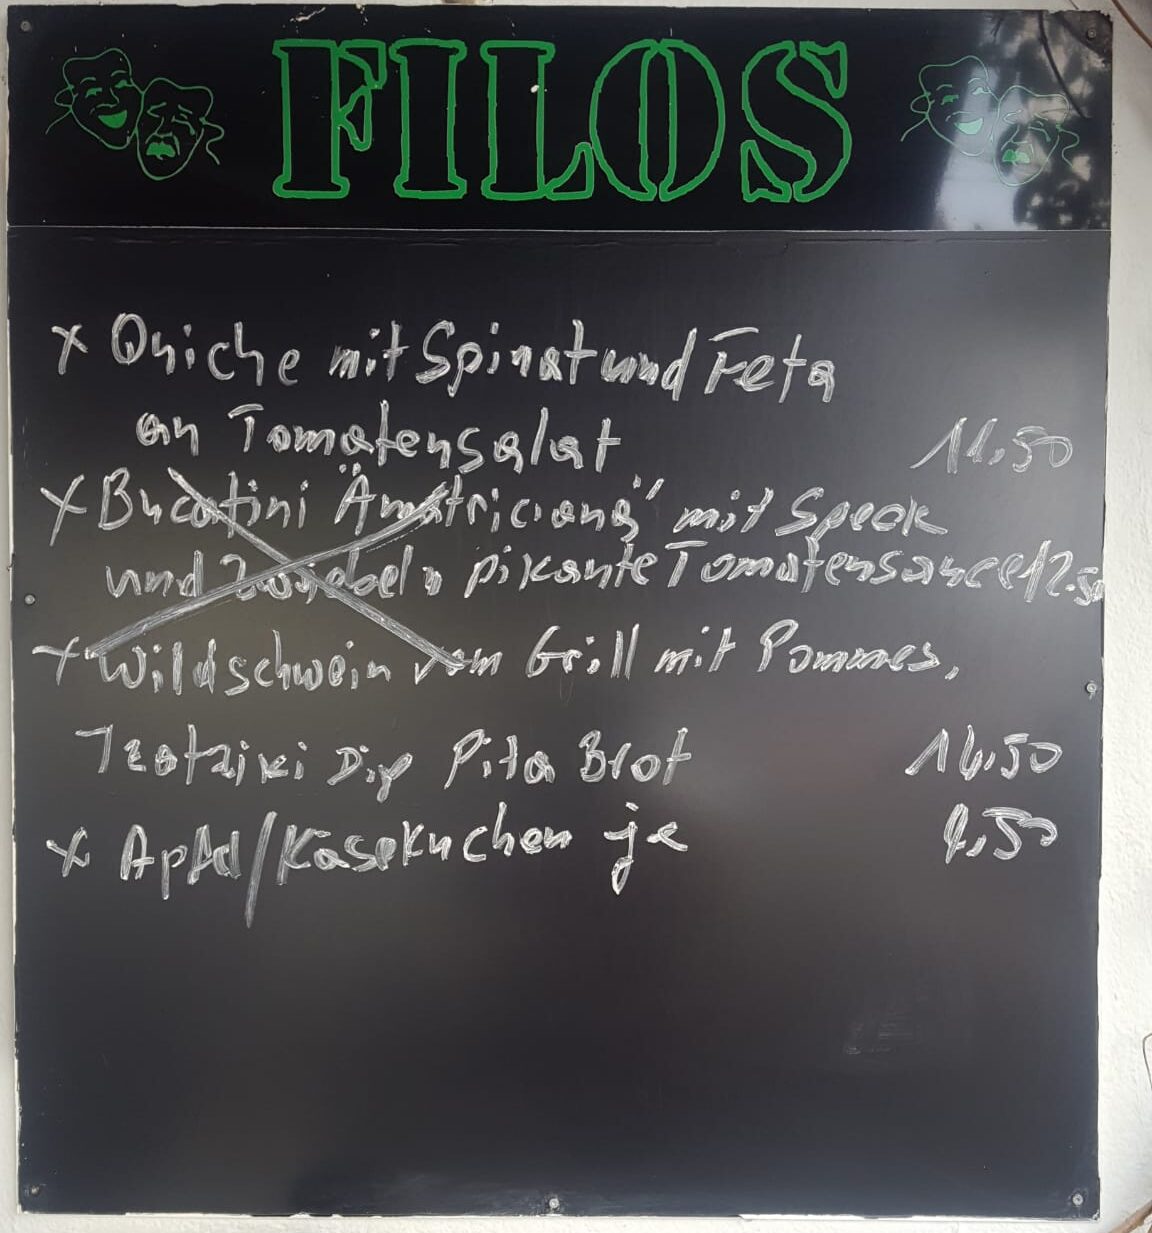 FILOS
x Quiche mit Spinat und Feta
an Tomatensalat 11,50
x Bucatini "Amatriciana" mit Speck
und Zwiebeln pikante Tomatensauce 12.50
x Wildschwein vom Grill mit Pommes,
Tzatziki Dip Pita Brot
x Apfel/Käsekuchen je 4,50